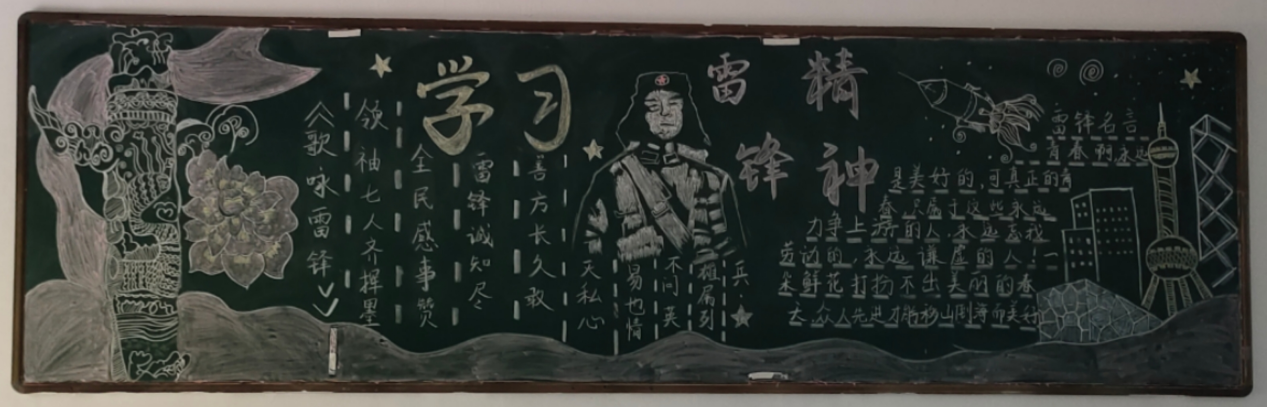 学习
雷锋
精神
《歌咏雷锋》
领袖七人齐挥墨
全民感事赞
雷锋诚知尽
善方长久敢
天私心
易也情
不问英
雄属列
兵
雷锋名言
青春啊永远
是美好的,可真正的青
春只属于这些永远
力争上游的人,永远忘我
劳动的,永远谦虚的人!一
朵鲜花打扮不出美丽的春
天,众人先进才